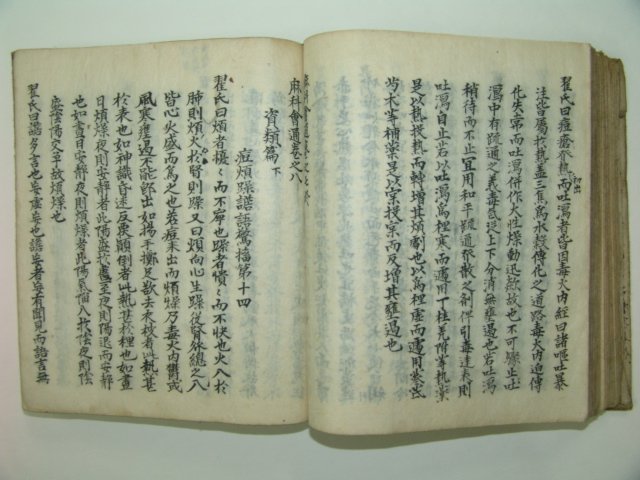 翟氏曰痘瘡發熱而吐瀉者皆因毒火內經曰諸嘔吐暴
初出
注皆屬於熱盖三焦為水穀傳化之道路毒火內迫傳
化失常而吐瀉併作火性燥動迅欻故也不可驟止吐
瀉中有疏通之義毒氣上下分消無壅遏也若吐瀉
稍待而不止宜用和平疏道發散之劑俾引毒達表則
吐瀉自止若以吐瀉為裡寒而遽用丁桂羌附等熱藥
是以熱投熱而轉增其煩劇也以為裡虛而遽用參朮
苓木等補藥是以實投實而反增其壅遏也
麻科會通卷之八
資類篇 下
痘煩躁譫語驚搐第十四
翟氏曰煩者擾〻而不寧也躁者憒〻而不快也火入於
肺則煩火於腎則躁又曰煩向心生躁從腎起總之八
皆心火盛而為之也若痘未出而煩躁乃毒火內鬱或
風寒壅遏不能即出如揚手擲足歛去衣被者此熱甚
於表也如神識昏迷反衷顚倒者此熱甚於裡也如晝
日煩燥夜則安靜者此陽盛於陽至夜則陽退而安靜
也如晝日安靜夜則煩燥者此陽氣陷入於陰夜則陰
盛陰陽交爭故煩燥也
翟氏曰譫多言也妄虛妄也譫妄者妄有聞見而語言無